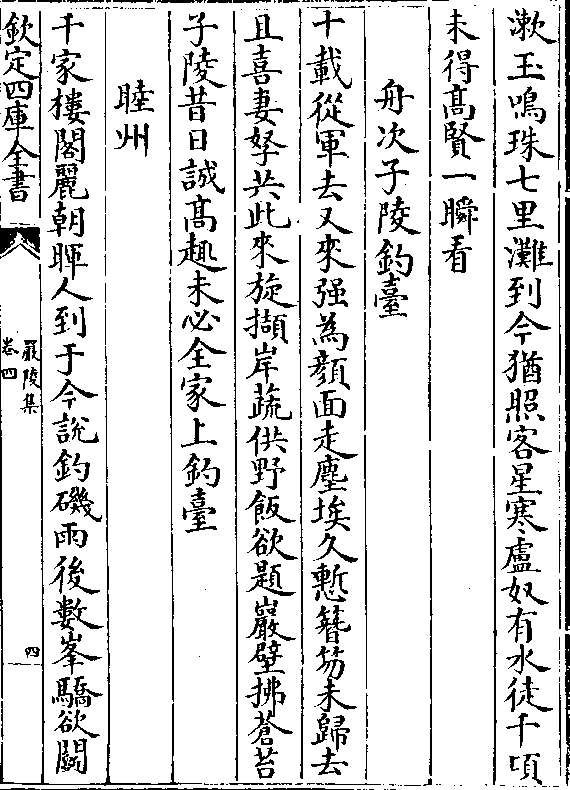 漱玉鳴珠七里灘到今猶照客星寒盧奴有水徒千頃
未得髙賢一瞬看
舟次子陵釣臺
十載從軍去又來强為顔面走塵埃久慙簪笏未歸去
且喜妻孥共此來旋擷岸蔬供野飯欲題巖壁拂蒼苔
子陵昔日誠髙趣未必全家上釣臺
睦州
千家樓閣麗朝暉人到于今說釣磯雨後數峯驕欲闘
欽定四庫全書
嚴陵集
卷四
四